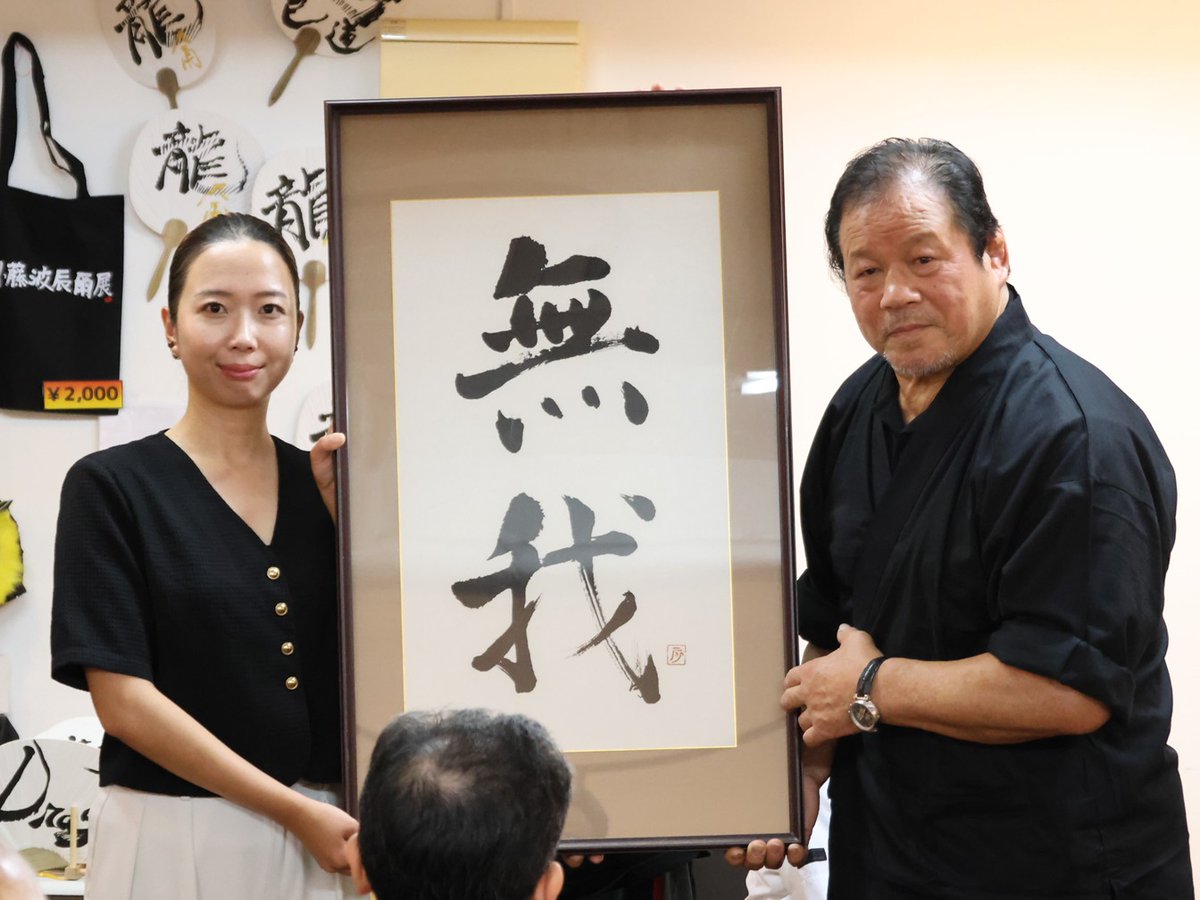 龍
道
龍
龍
藤波辰爾展
¥2,000
無
我